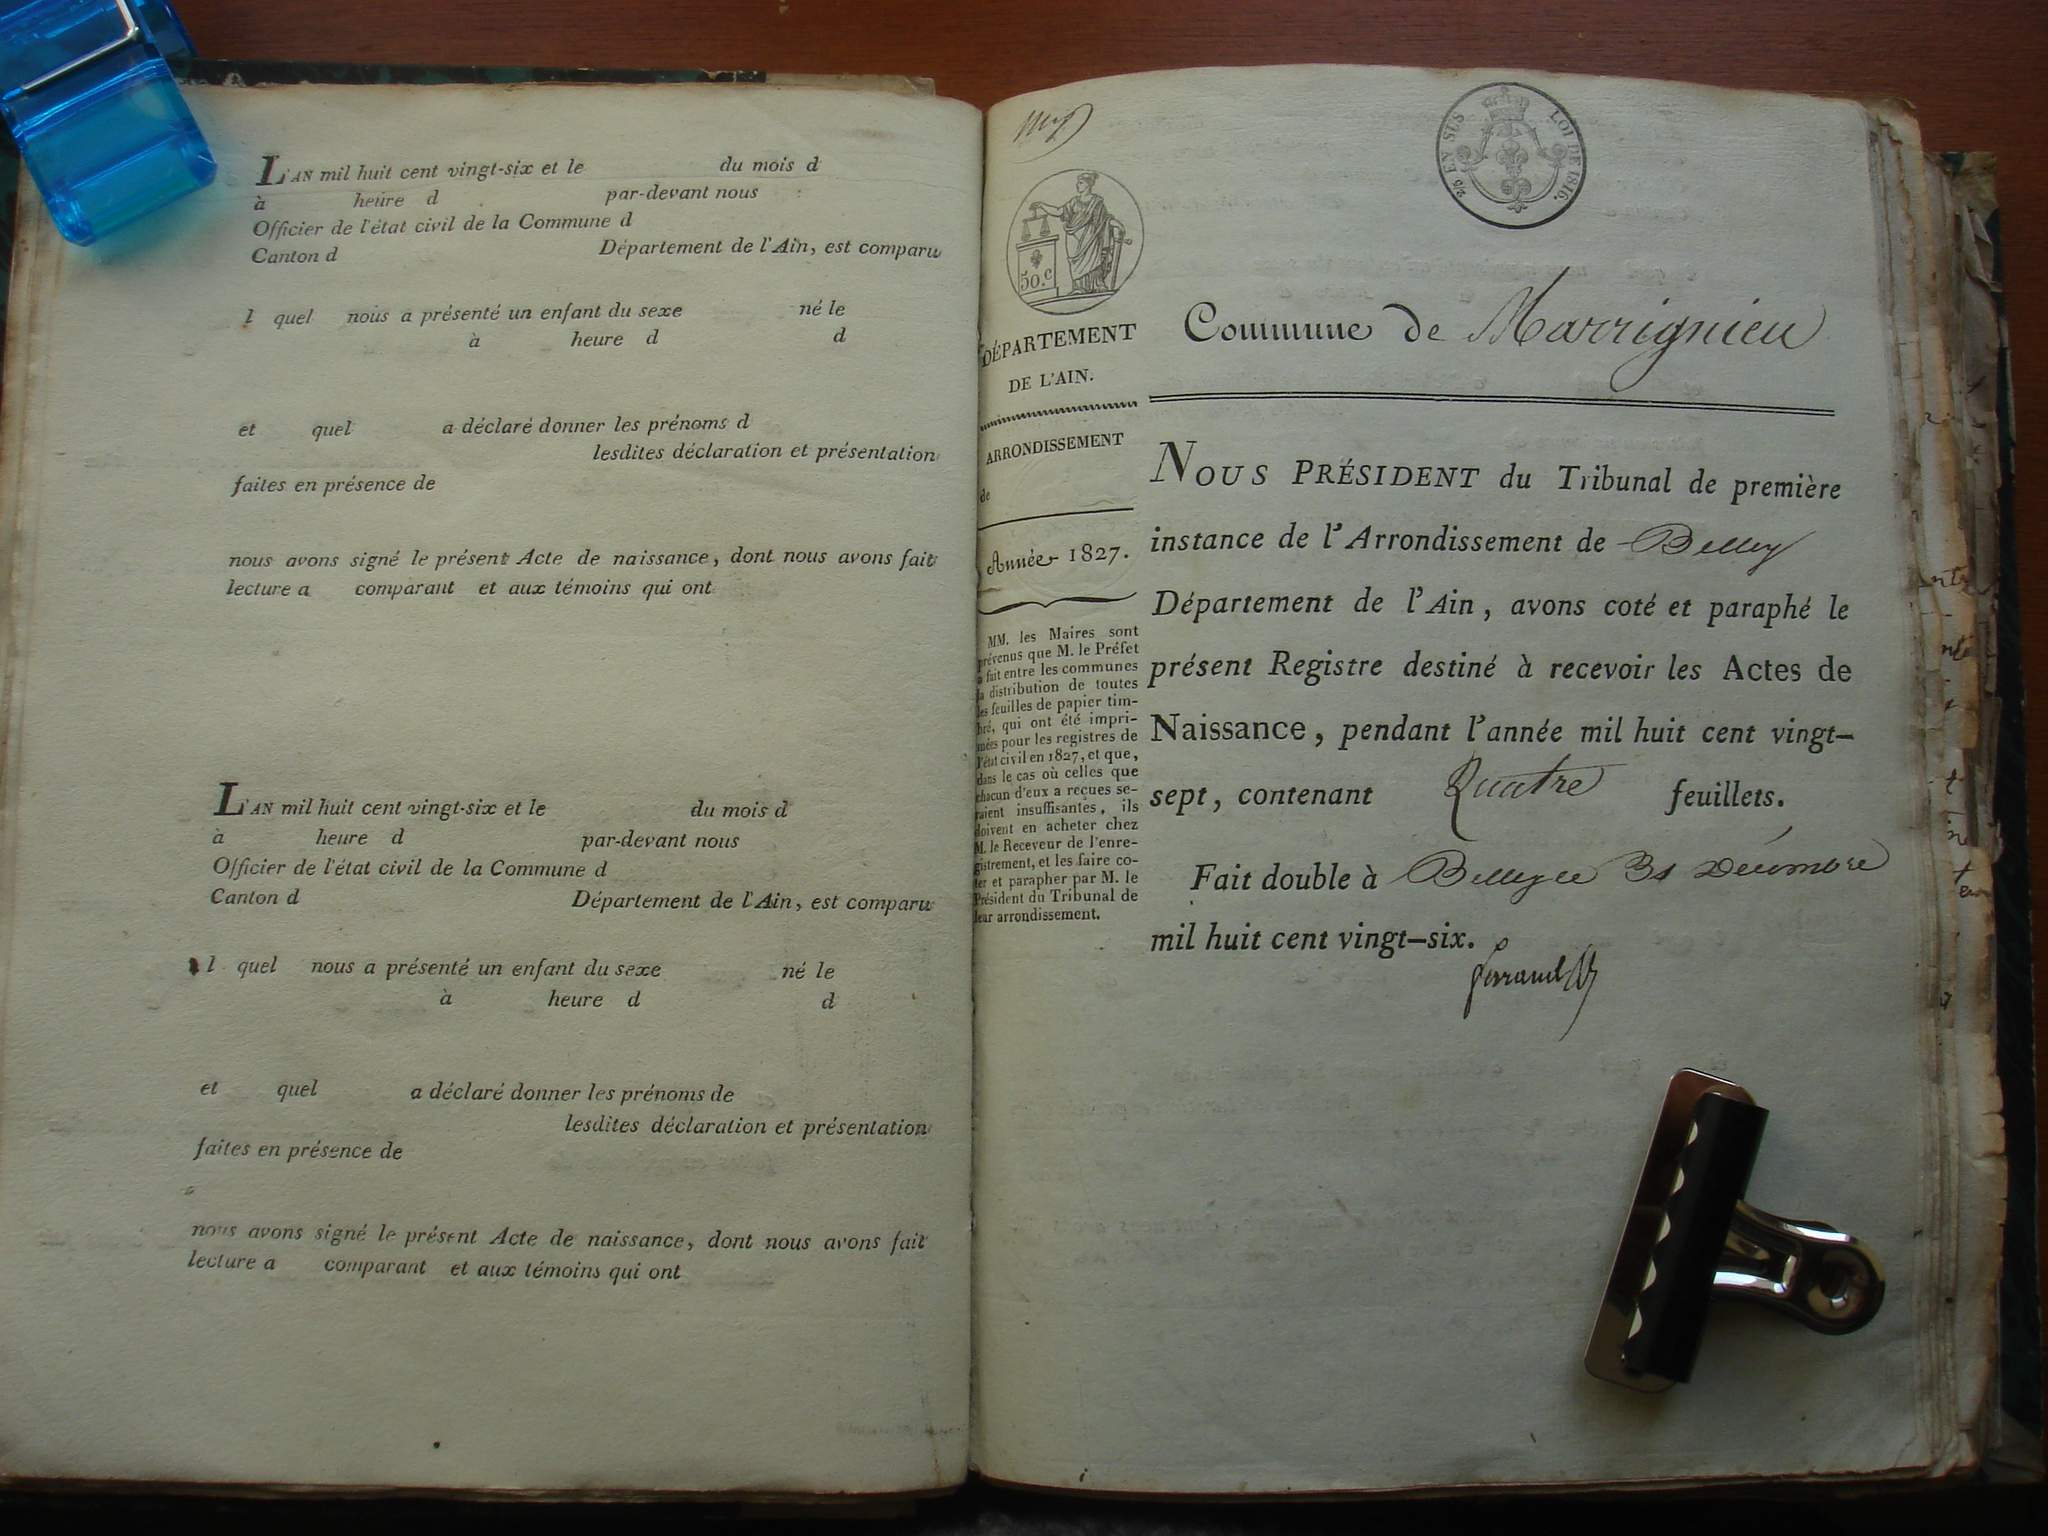 L'AN mil huit cent vingt-six et le du mois d
à heure d par-devant nous
Officier de l'état civil de la Commune d
Canton d Département de l'Ain, est comparu
l quel nous a présenté un enfant du sexe né le
à heure d d
et quel a déclaré donner les prénoms d
lesdites déclaration et présentation
faites en présence de
nous avons signé le présent Acte de naissance, dont nous avons fait
lecture a comparant et aux témoins qui ont
L'AN mil huit cent vingt-six et le du mois d
à heure d par-devant nous
Officier de l'état civil de la Commune d
Canton d Département de l'Ain, est comparu
l quel nous a présenté un enfant du sexe né le
à heure d d
et quel a déclaré donner les prénoms de
lesdites déclaration et présentation
faites en présence de
nous avons signé le présent Acte de naissance, dont nous avons fait
lecture a comparant et aux témoins qui ont
50.c
DÉPARTEMENT
DE L'AIN.
ARRONDISSEMENT
de
Année 1827.
MM. les Maires sont
prévenus que M. le Préfet
a fait entre les communes
la distribution de toutes
les feuilles de papier tim-
bré, qui ont été impri-
mées pour les registres de
l'état civil en 1827, et que,
dans le cas où celles que
chacun d'eux a reçues se-
raient insuffisantes, ils
doivent en acheter chez
M. le Receveur de l'enre-
gistrement, et les faire co-
ter et parapher par M. le
Président du Tribunal de
leur arrondissement.
EN SUS LOI DE 1816.
Commune de Marrignieu
NOUS PRÉSIDENT du Tribunal de première
instance de l'Arrondissement de Belley
Département de l'Ain, avons coté et paraphé le
présent Registre destiné à recevoir les Actes de
Naissance, pendant l'année mil huit cent vingt-
sept, contenant Quatre feuillets.
Fait double à Belley le 31 Décembre
mil huit cent vingt-six.